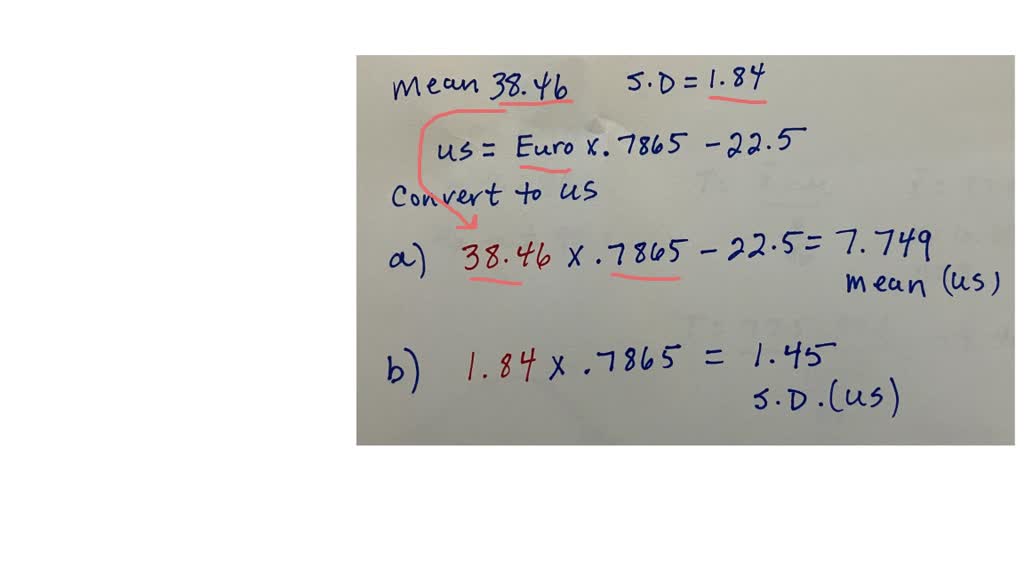 mean 38.46 S.D = 1.84
us = Euro x .7865 - 22.5
Convert to us
a) 38.46 x .7865 - 22.5 = 7.749
mean (us)
b) 1.84 x .7865 = 1.45
S.D. (us)